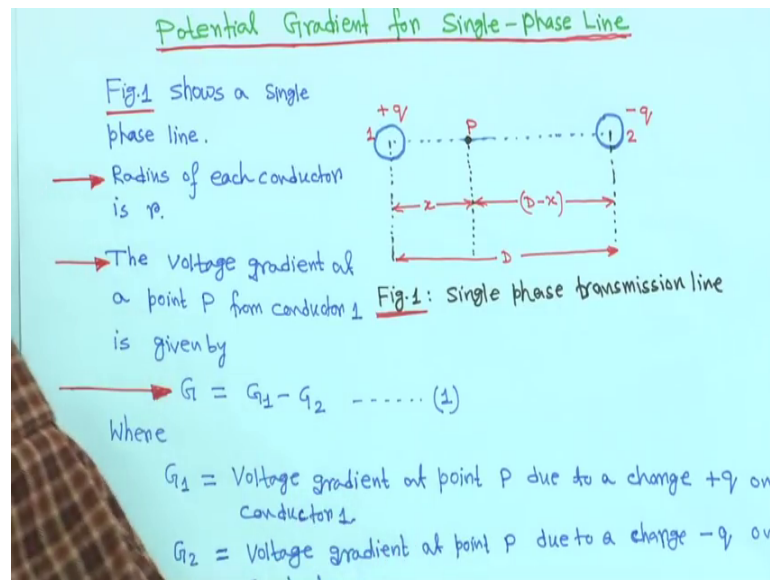 Potential Gradient for Single-Phase Line
Fig.1 shows a single
phase line.
Radius of each conductor
is r.
The voltage gradient at
a point P from conductor 1
is given by
G = G1 - G2 ------ (1)
Where
G1 = Voltage gradient at point P due to a charge +q on
conductor 1
G2 = Voltage gradient at point P due to a charge -q on
+q
1
P
-q
2
x
(D-x)
D
Fig.1: Single phase transmission line